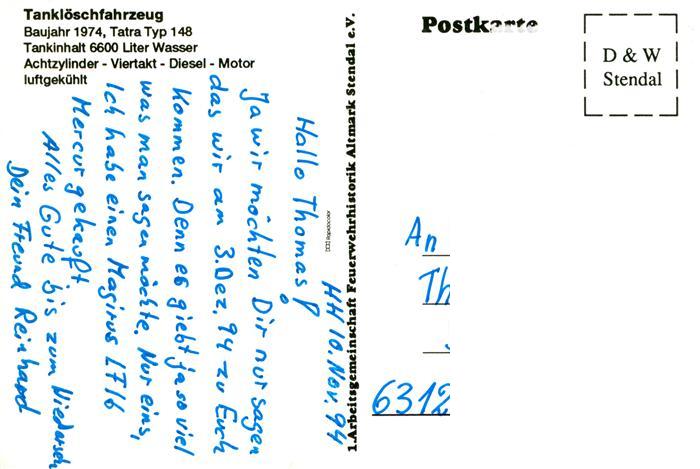 Tanklöschfahrzeug
Baujahr 1974, Tatra Typ 148
Tankinhalt 6600 Liter Wasser
Achtzylinder - Viertakt - Diesel - Motor
luftgekühlt
HH 10. Nov. 94
Hallo Thomas!
Ja wir möchten Dir nur sagen
das wir am 3. Dez. 94 zu Euch
kommen. Denn es giebt ja so viel
was man sagen möchte. Nur eins,
Ich habe einen Magirus L716
Mercur gekauft
Alles Gute bis zum Wiedersehn
Dein Freund Reinhard
1.Arbeitsgemeinschaft Feuerwehrhistorik Altmark Stendal e.V.
Postkarte
D & W
Stendal
An
Th
6312